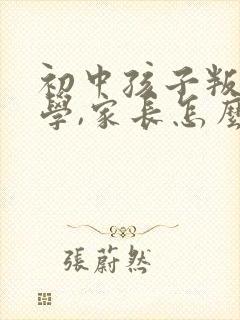 初中孩子叛
學,家長怎麼
張蔚然